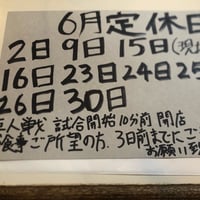 6月定休日
2日9日15日(現
16日23日24日25
26日30日
巨人戦 試合開始10分前 開店
食事ご所望の方、3日前までにご
お願い致